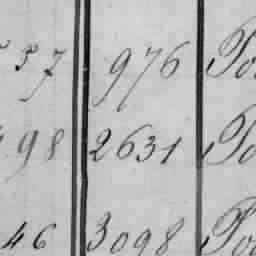 57 976 Po
98 2631 Po
46 3098 Po